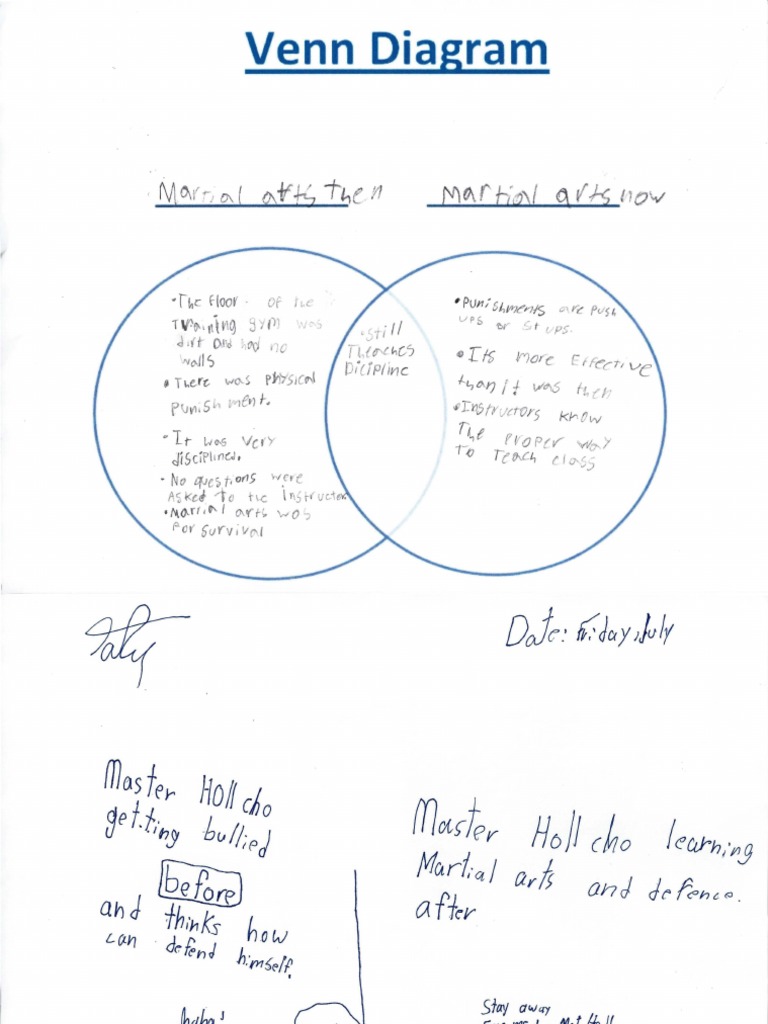 Venn Diagram
Martial arts then
Martial arts now
• The floor of the
training gym was
dirt and had no
walls
• There was physical
punishment.
• It was very
disciplined.
• No questions were
Asked To the instructor
• Martial arts was
for survival
• Still
Theaches
Dicipline
• Punishments are push
ups or situps.
• Its more Effective
than it was then
• Instructors know
The proper way
To Teach class
Date: Friday, July
Master Holl cho
getting bullied
before
and thinks how
can defend himself.
Master Holl cho learning
Martial arts and defence.
after
haha!
Stay away